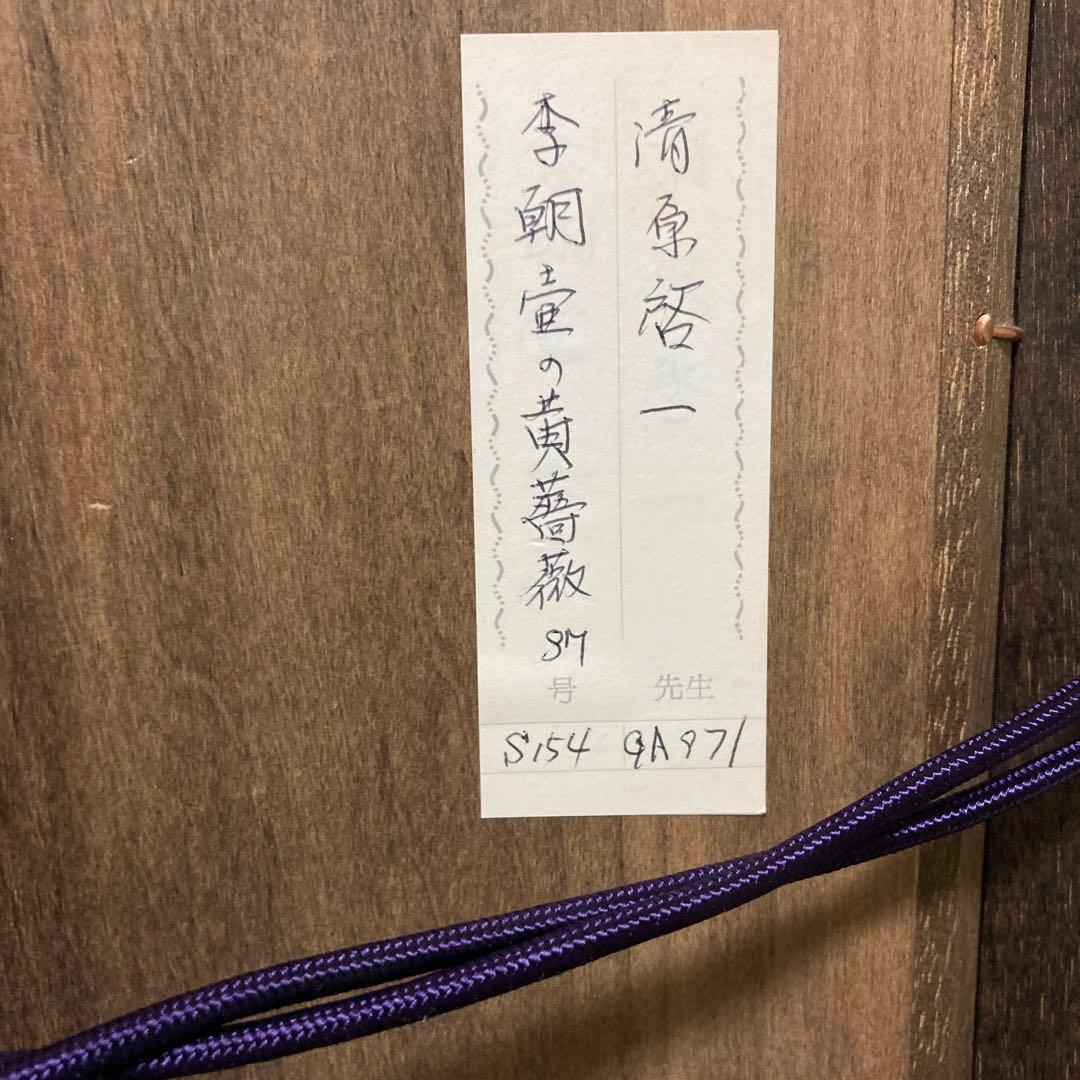 清原啓一
先生
李朝壷の黄薔薇
号
S154